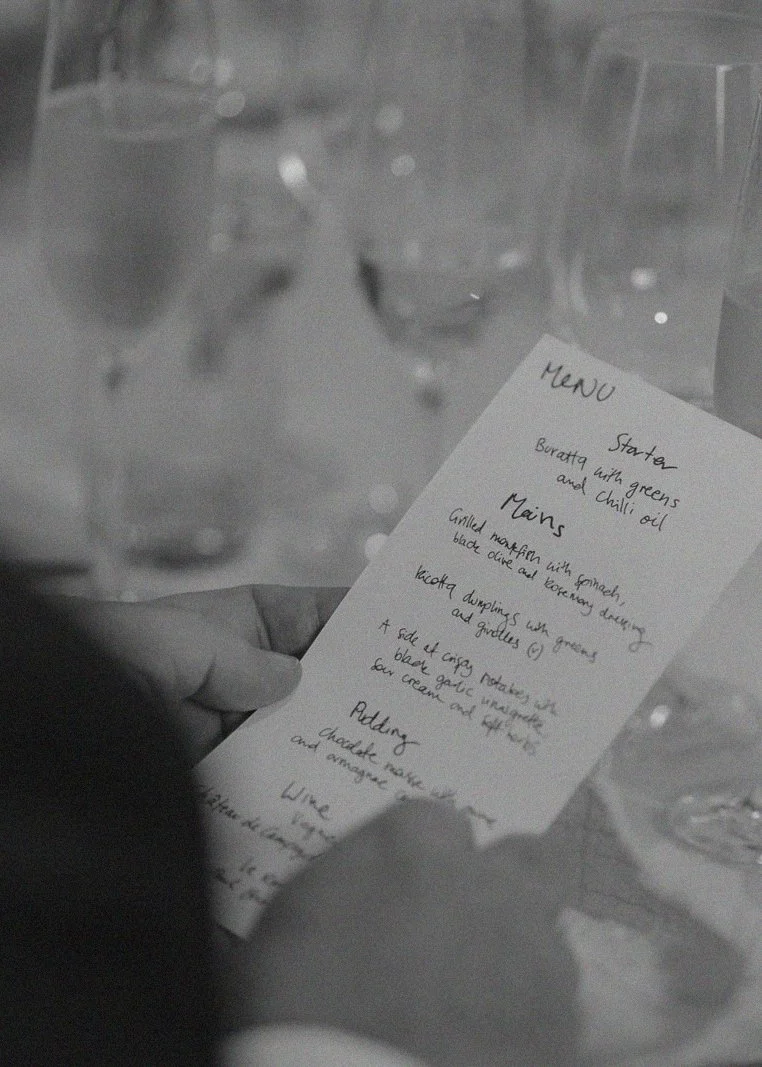 MENU
Starter
Buratta with greens
and chilli oil
Mains
Grilled monkfish with spinach,
black olive and rosemary dressing
Ricotta dumplings with greens
and girolles (v)
A side of crispy potatoes with
black garlic vinaigrette
sour cream and soft herbs
Pudding
chocolate with
and armagnac
Wine